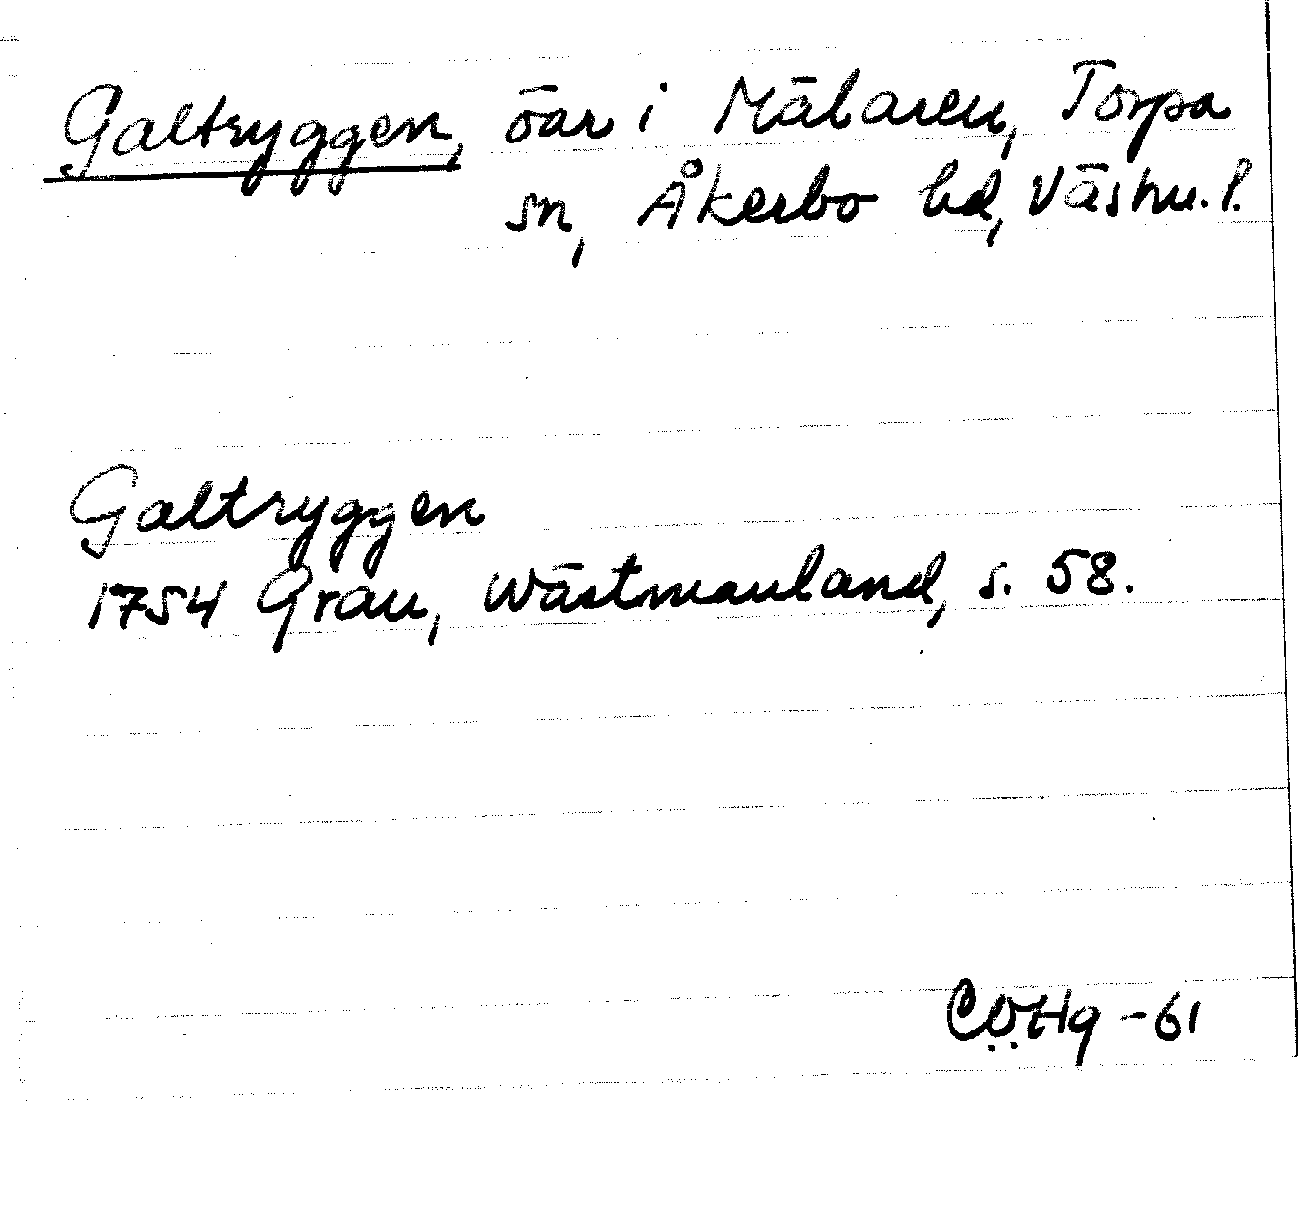 Galtryggen, öar i Mälaren, Torpa
sn, Åkerbo hd, Västm. l.
Galtryggen
1754 Grau, Wästmanland, s. 58.
CÖHg -61